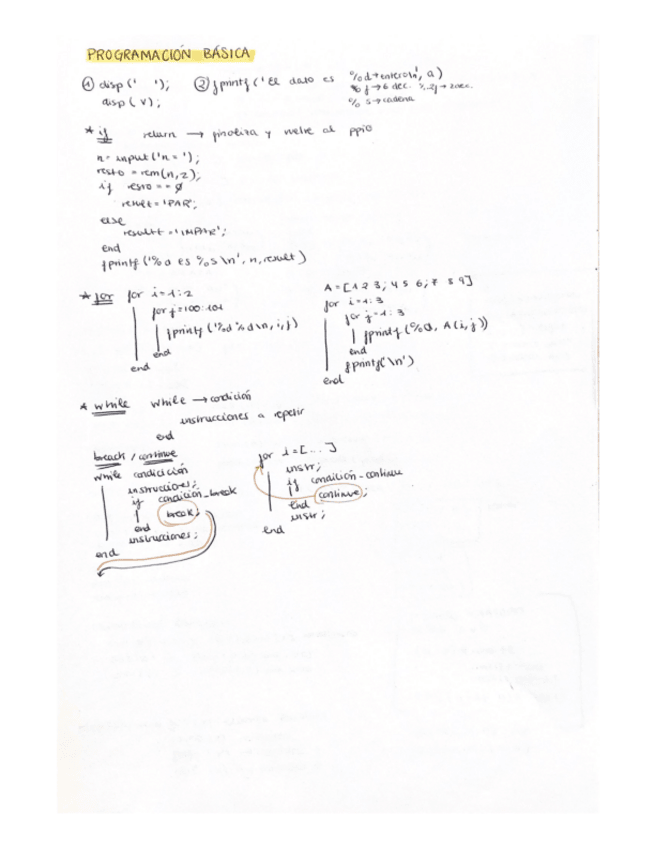 PROGRAMACIÓN BÁSICA
① disp(' '); ② fprintf('El dato es %d→entero\n', a)
disp(v); %f→6 dec. %.2f→2dec.
%s→cadena
* if return → finaliza y vuelve al ppio
n=input('n=');
resto=rem(n,2);
if resto==0
result='PAR';
else
result='IMPAR';
end
fprintf('%d es %s\n', n, result)
* for for i=1:2
for j=100:101
fprintf('%d %d\n, i, j)
end
end
A=[1 2 3; 4 5 6; 7 8 9]
for i=1:3
for j=1:3
fprintf(%d, A(i,j))
end
fprintf('\n')
end
* while while → condición
instrucciones a repetir
end
break / continue
while condición
instrucciones;
if condición_break
break;
end
instrucciones;
end
for i=[...]
instr;
if condición_continue
continue;
end
instr;
end